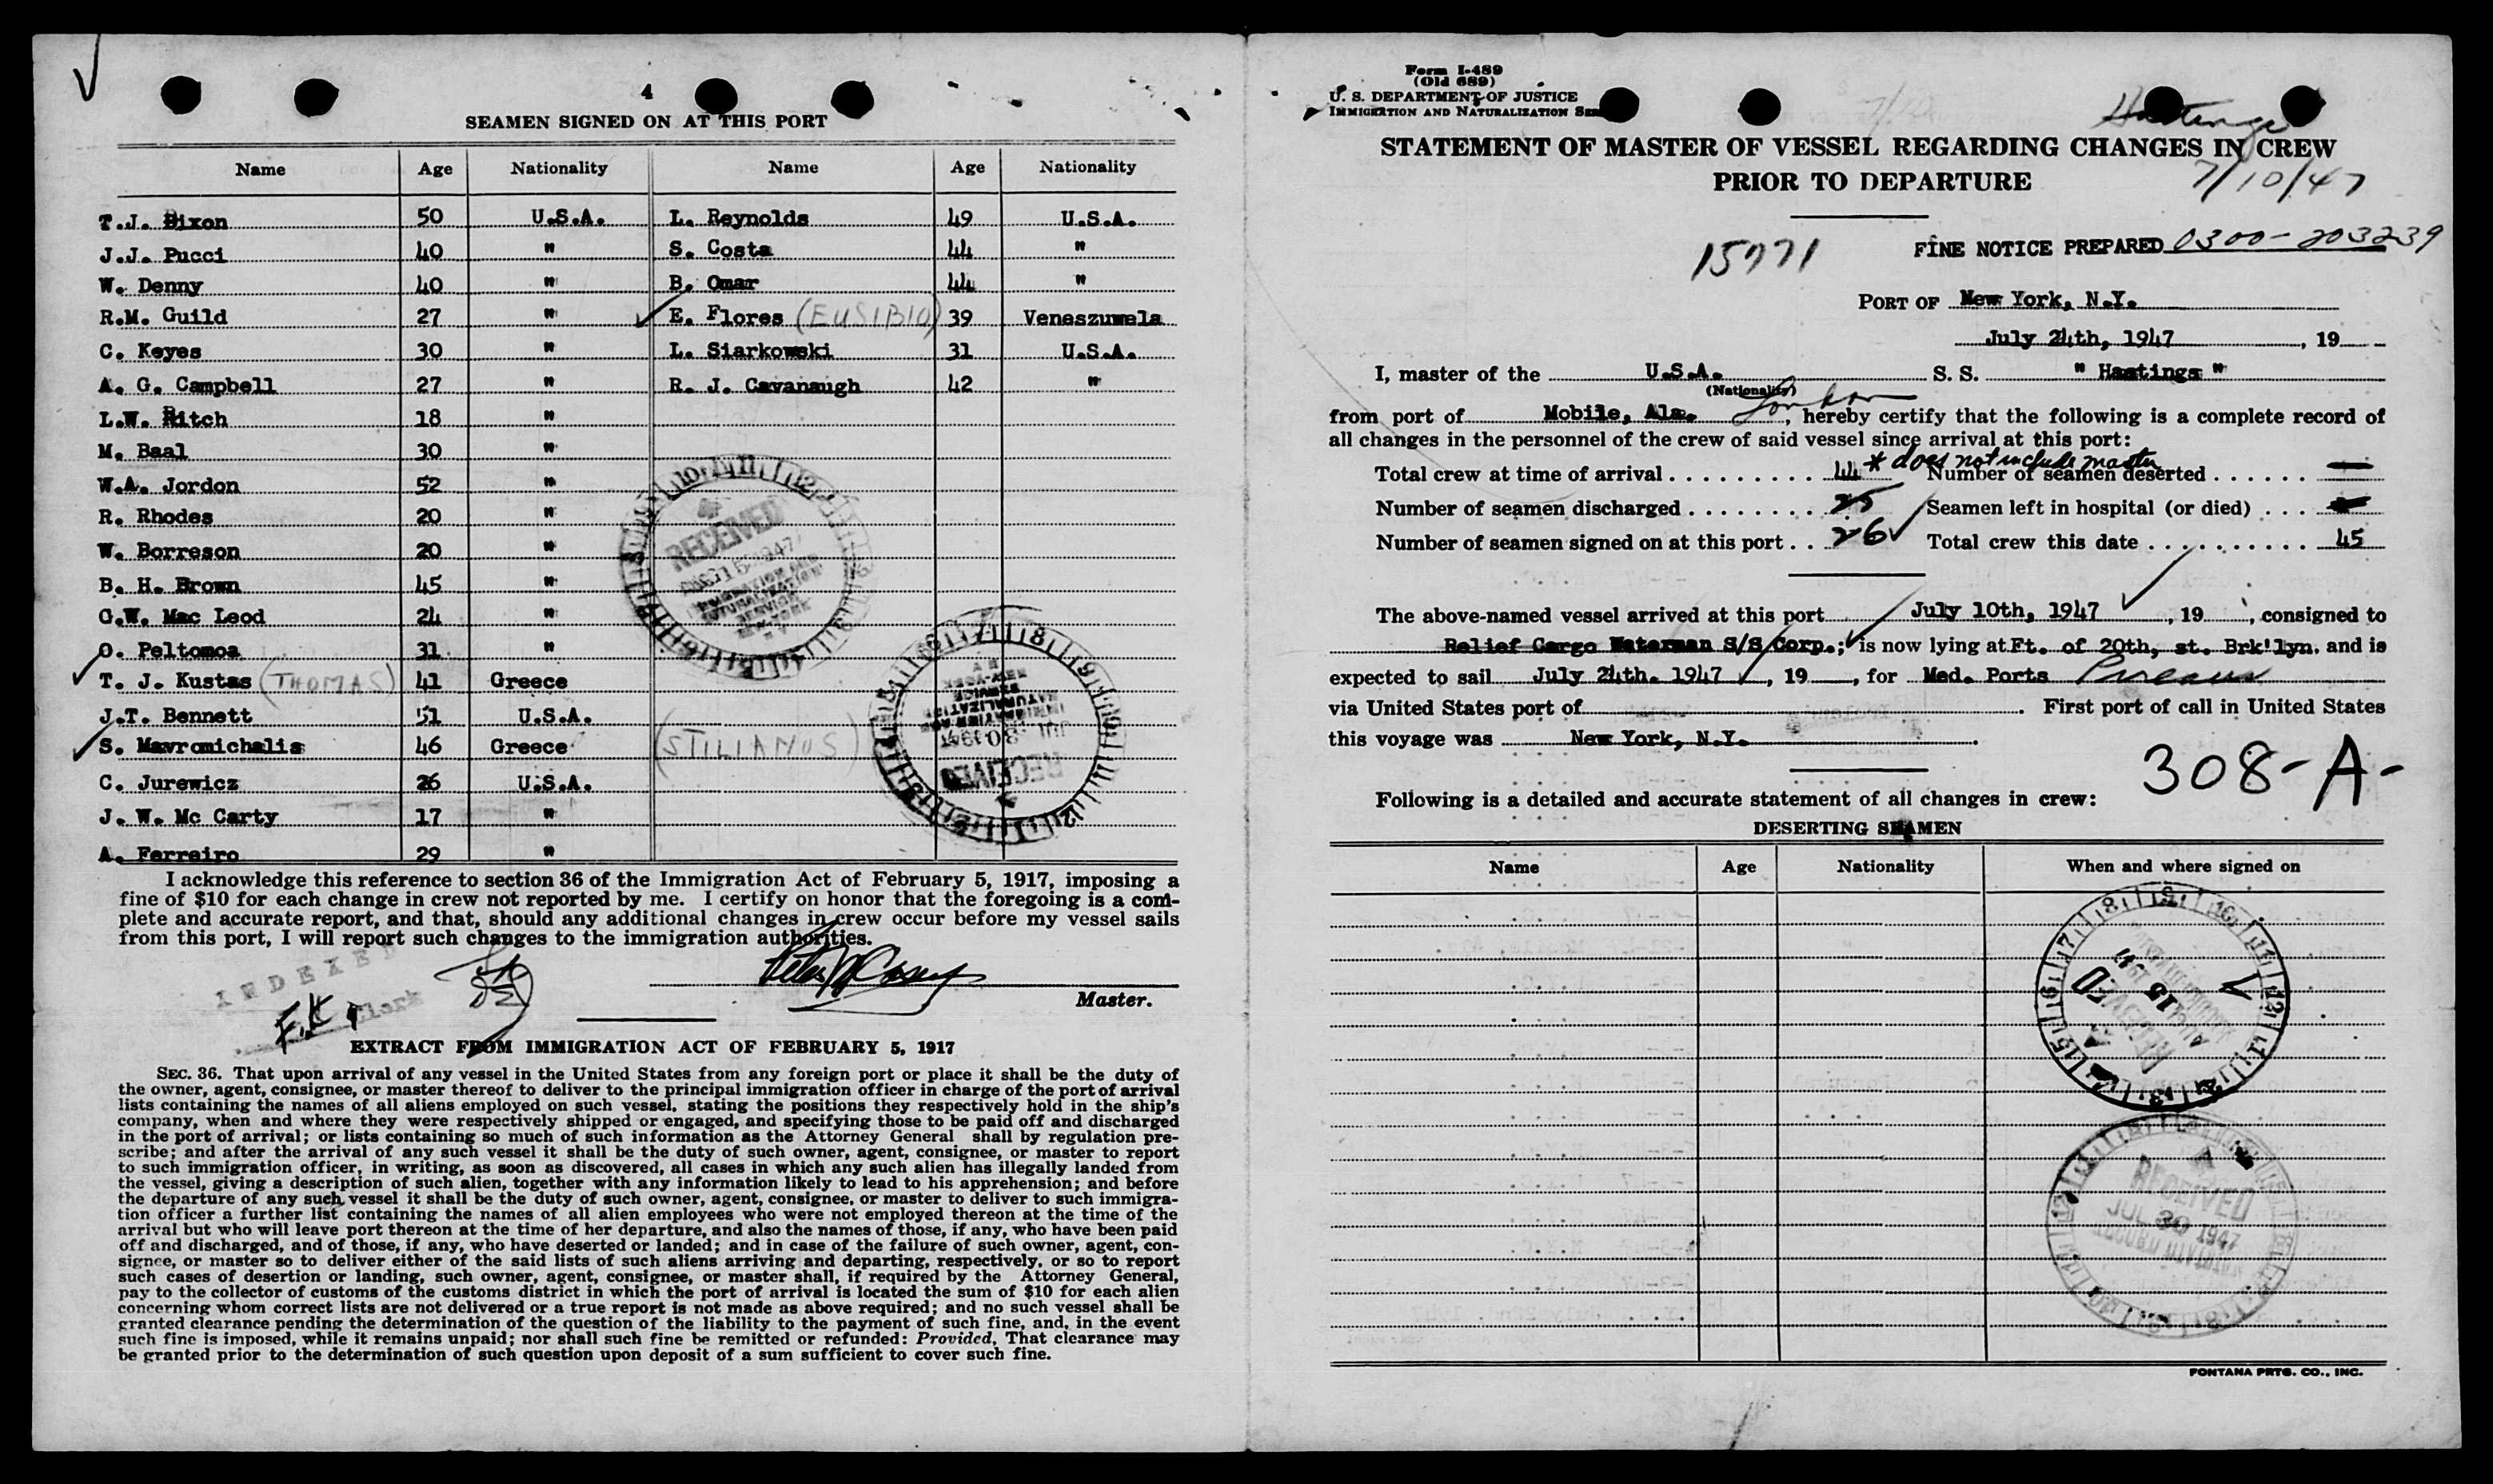 4
SEAMEN SIGNED ON AT THIS PORT
Name Age Nationality Name Age Nationality
T.J. Dixon 50 U.S.A. L. Reynolds 49 U.S.A.
J.J. Pucci 40 " S. Costa 44 "
W. Denny 40 " B. Omar 44 "
R.M. Guild 27 " E. Flores (EUSIBIO) 39 Veneszuwela
C. Keyes 30 " L. Siarkowski 31 U.S.A.
A. G. Campbell 27 " R. J. Cavanaugh 42 "
L.W. Ritch 18 "
M. Baal 30 "
W.A. Jordon 52 "
R. Rhodes 20 "
W. Borreson 20 "
B. H. Brown 45 "
G.W. Mac Leod 24 "
O. Peltomoa 31 "
T. J. Kustas (THOMAS) 41 Greece
J.T. Bennett 51 U.S.A.
S. Mavromichalis 46 Greece (STILIANOS)
C. Jurewicz 26 U.S.A.
J. W. Mc Carty 17 "
A. Ferreiro 29 "
RECEIVED
1947
IMMIGRATION AND
NATURALIZATION
SERVICE
NEW YORK
N Y
RECEIVED
JUL 30 1947
IMMIGRATION AND
NATURALIZATION
SERVICE
NEW YORK
N Y
I acknowledge this reference to section 36 of the Immigration Act of February 5, 1917, imposing a
fine of $10 for each change in crew not reported by me. I certify on honor that the foregoing is a com-
plete and accurate report, and that, should any additional changes in crew occur before my vessel sails
from this port, I will report such changes to the immigration authorities.
INDEXED
F.K. Clerk
Master.
EXTRACT FROM IMMIGRATION ACT OF FEBRUARY 5, 1917
SEC. 36. That upon arrival of any vessel in the United States from any foreign port or place it shall be the duty of
the owner, agent, consignee, or master thereof to deliver to the principal immigration officer in charge of the port of arrival
lists containing the names of all aliens employed on such vessel, stating the positions they respectively hold in the ship's
company, when and where they were respectively shipped or engaged, and specifying those to be paid off and discharged
in the port of arrival; or lists containing so much of such information as the Attorney General shall by regulation pre-
scribe; and after the arrival of any such vessel it shall be the duty of such owner, agent, consignee, or master to report
to such immigration officer, in writing, as soon as discovered, all cases in which any such alien has illegally landed from
the vessel, giving a description of such alien, together with any information likely to lead to his apprehension; and before
the departure of any such vessel it shall be the duty of such owner, agent, consignee, or master to deliver to such immigra-
tion officer a further list containing the names of all alien employees who were not employed thereon at the time of the
arrival but who will leave port thereon at the time of her departure, and also the names of those, if any, who have been paid
off and discharged, and of those, if any, who have deserted or landed; and in case of the failure of such owner, agent, con-
signee, or master so to deliver either of the said lists of such aliens arriving and departing, respectively, or so to report
such cases of desertion or landing, such owner, agent, consignee, or master shall, if required by the Attorney General,
pay to the collector of customs of the customs district in which the port of arrival is located the sum of $10 for each alien
concerning whom correct lists are not delivered or a true report is not made as above required; and no such vessel shall be
granted clearance pending the determination of the question of the liability to the payment of such fine, and, in the event
such fine is imposed, while it remains unpaid; nor shall such fine be remitted or refunded: Provided, That clearance may
be granted prior to the determination of such question upon deposit of a sum sufficient to cover such fine.
Form I-489
(Old 689)
U. S. DEPARTMENT OF JUSTICE
IMMIGRATION AND NATURALIZATION
Hastings
STATEMENT OF MASTER OF VESSEL REGARDING CHANGES IN CREW
PRIOR TO DEPARTURE
7/10/47
15771 FINE NOTICE PREPARED 0300-203239
PORT OF New York, N.Y.
July 24th, 1947, 19
I, master of the U.S.A. S. S. " Hastings "
(Nationality)
from port of Mobile, Ala. London, hereby certify that the following is a complete record of
all changes in the personnel of the crew of said vessel since arrival at this port:
* does not include master
Total crew at time of arrival 44 Number of seamen deserted —
Number of seamen discharged 25 Seamen left in hospital (or died) —
Number of seamen signed on at this port 26 Total crew this date 45
The above-named vessel arrived at this port July 10th, 1947, 19 , consigned to
Relief Cargo Waterman S/S Corp.; is now lying at Ft. of 20th, st. Brk'lyn. and is
expected to sail July 24th. 1947, 19 , for Med. Ports Pireaus
via United States port of . First port of call in United States
this voyage was New York, N.Y.
308-A-
Following is a detailed and accurate statement of all changes in crew:
DESERTING SEAMEN
Name Age Nationality When and where signed on
RECEIVED
15 1947
RECEIVED
JUL 30 1947
RECORD DIVISION
FONTANA PRTG. CO., INC.